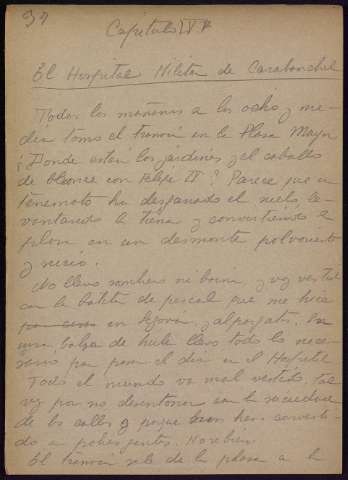 34
Capitulo IV
El Hospital Militar de Carabanchel
Todas las mañanas a las ocho y me-
dia tomo el tranvia en la Plaza Mayor
¿Donde están los jardines y el caballo
de bronce con Felipe III? Parece que un
terremoto ha desganado el suelo, le-
vantando la tierra y convirtiendo la
plaza en un desmonte polvoriento
y sucio.
No llevo sombrero ni boina, y voy vestida
con la batita de percal que me hice
en Segovia, y alpargatas. En
una bolsa de hule llevo todo lo nece-
sario para pasar el dia en el Hospital
Todo el mundo va mal vestido, tal
vez por no desentonar con la suciedad
de las calles y porque han
do a pobres gentes.
El tranvia sale de la plaza a la